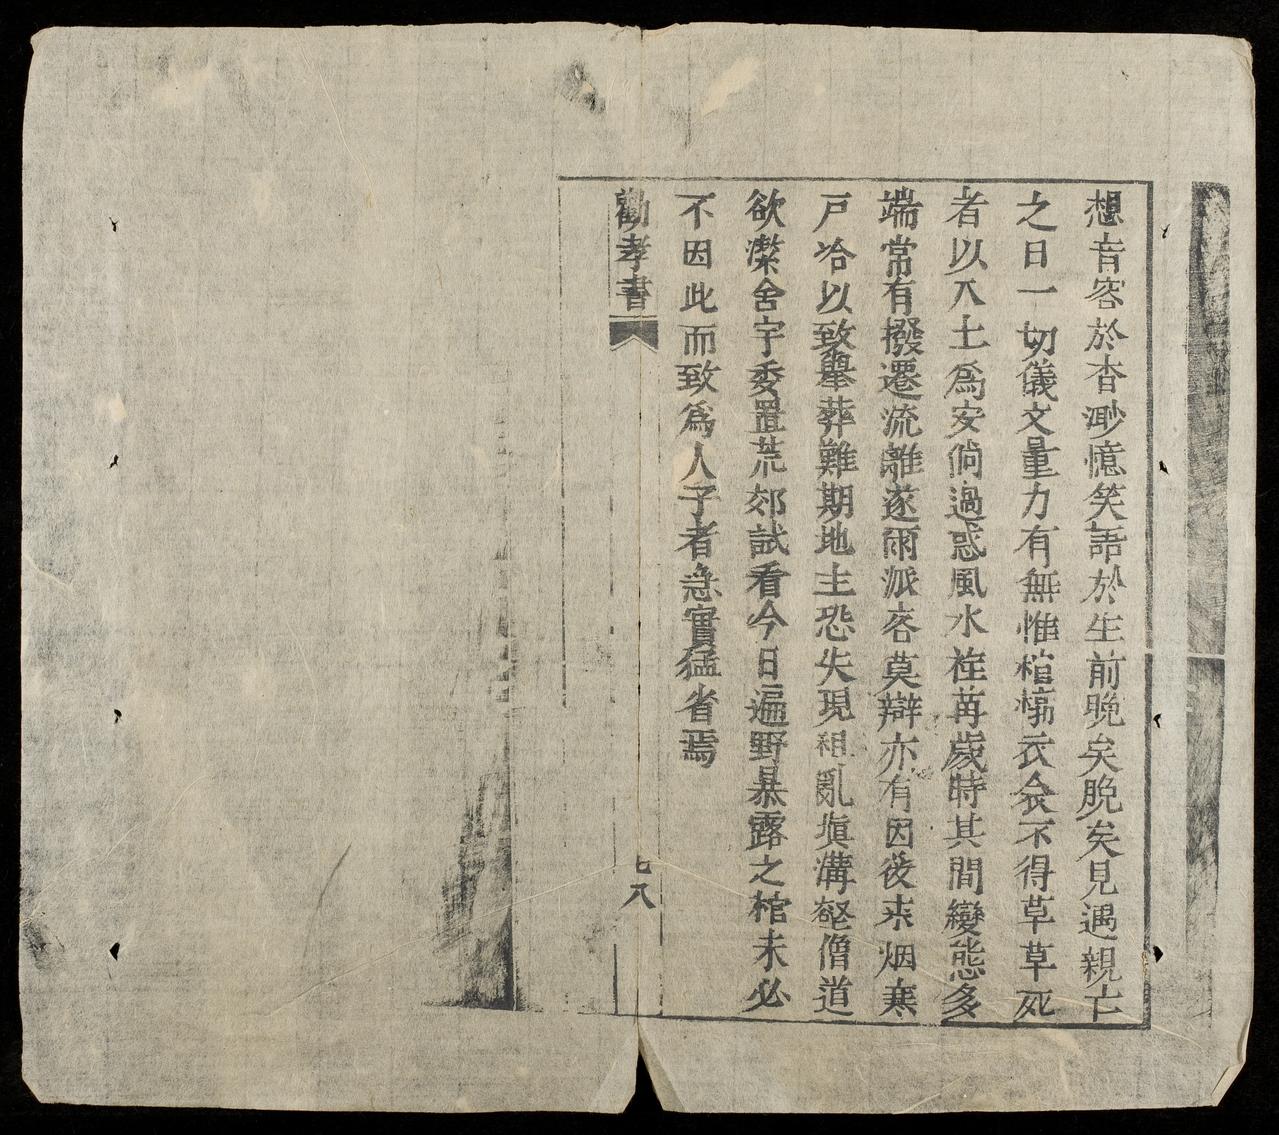 想音容於杳渺憶笑語於生前晚矣晚矣見遇親亡
之日一切儀文量力有無惟棺槨衣衾不得草草死
者以入土爲安倘過惑風水荏苒歲時其間變態多
端常有撥遷流離遂爾派客莫辯亦有因後來烟寒
戸冷以致舉葬難期地主恐失現租亂塡溝壑僧道
欲潔舍宇委置荒郊試看今日遍野暴露之棺未必
不因此而致爲人子者急實猛省焉
勸孝書
七八